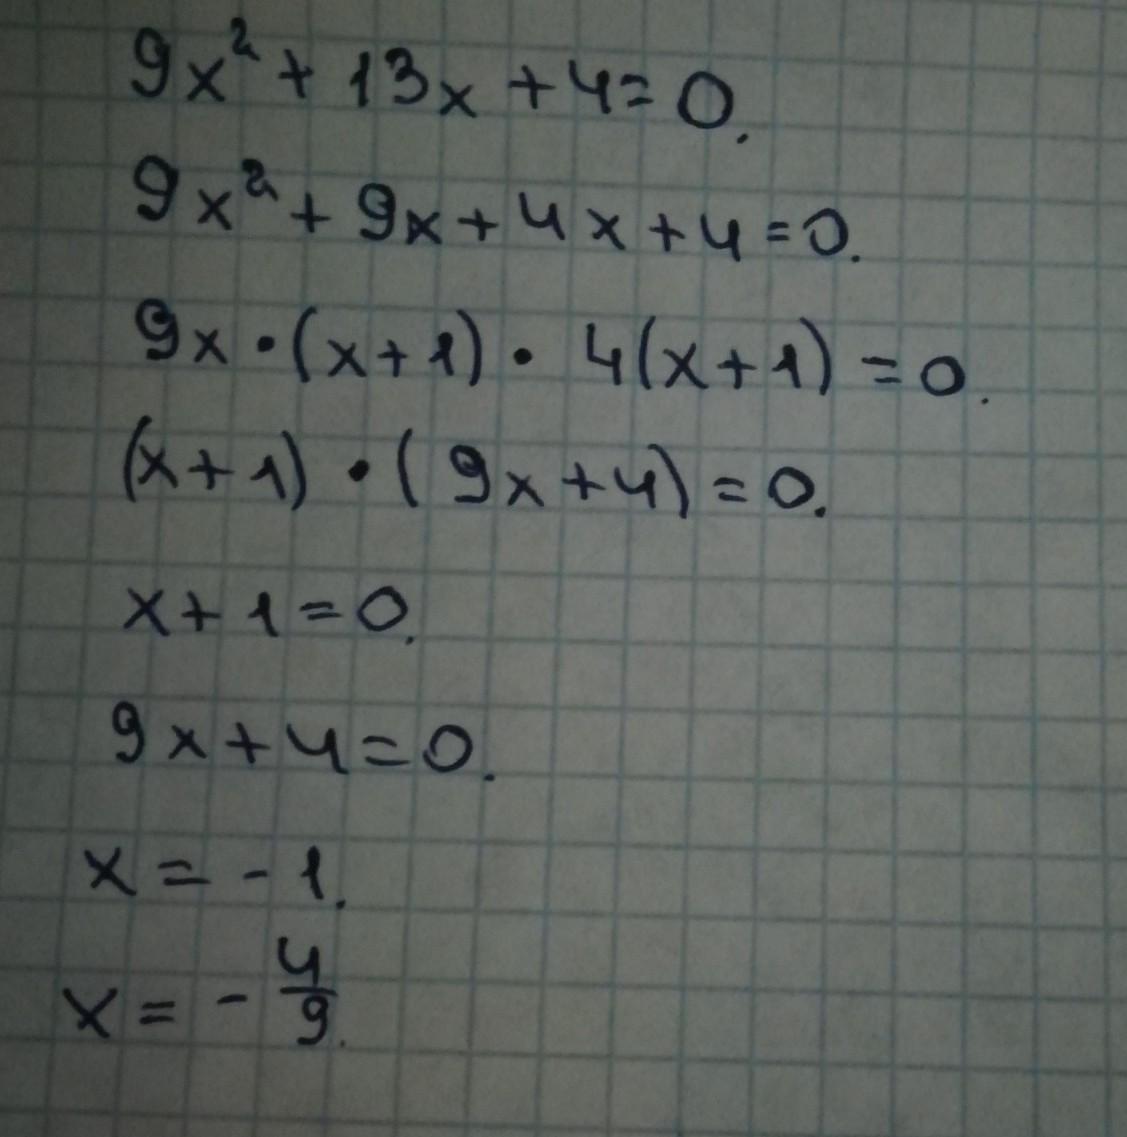 9x² + 13x + 4 = 0.
9x² + 9x + 4x + 4 = 0.
9x · (x + 1) · 4(x + 1) = 0.
(x + 1) · (9x + 4) = 0.
x + 1 = 0.
9x + 4 = 0.
x = - 1.
x = - 4/9.